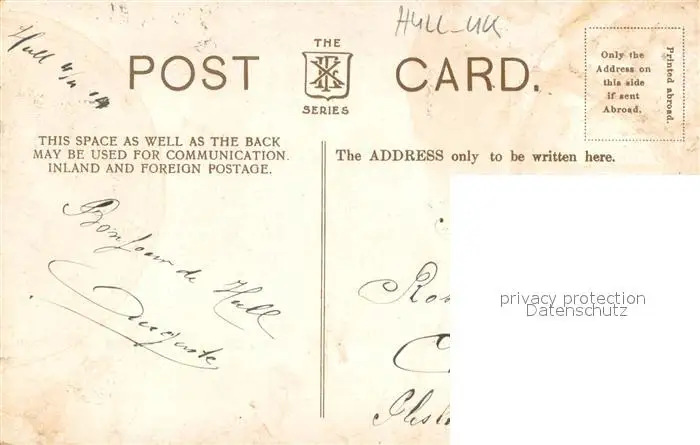 Hull
HULL-UK
THE
POST CARD.
SERIES
Only the
Address on
this side
if sent
Abroad.
Printed abroad.
THIS SPACE AS WELL AS THE BACK
MAY BE USED FOR COMMUNICATION.
INLAND AND FOREIGN POSTAGE.
The ADDRESS only to be written here.
Bonjour de Hull
Auguste
privacy protection
Datenschutz